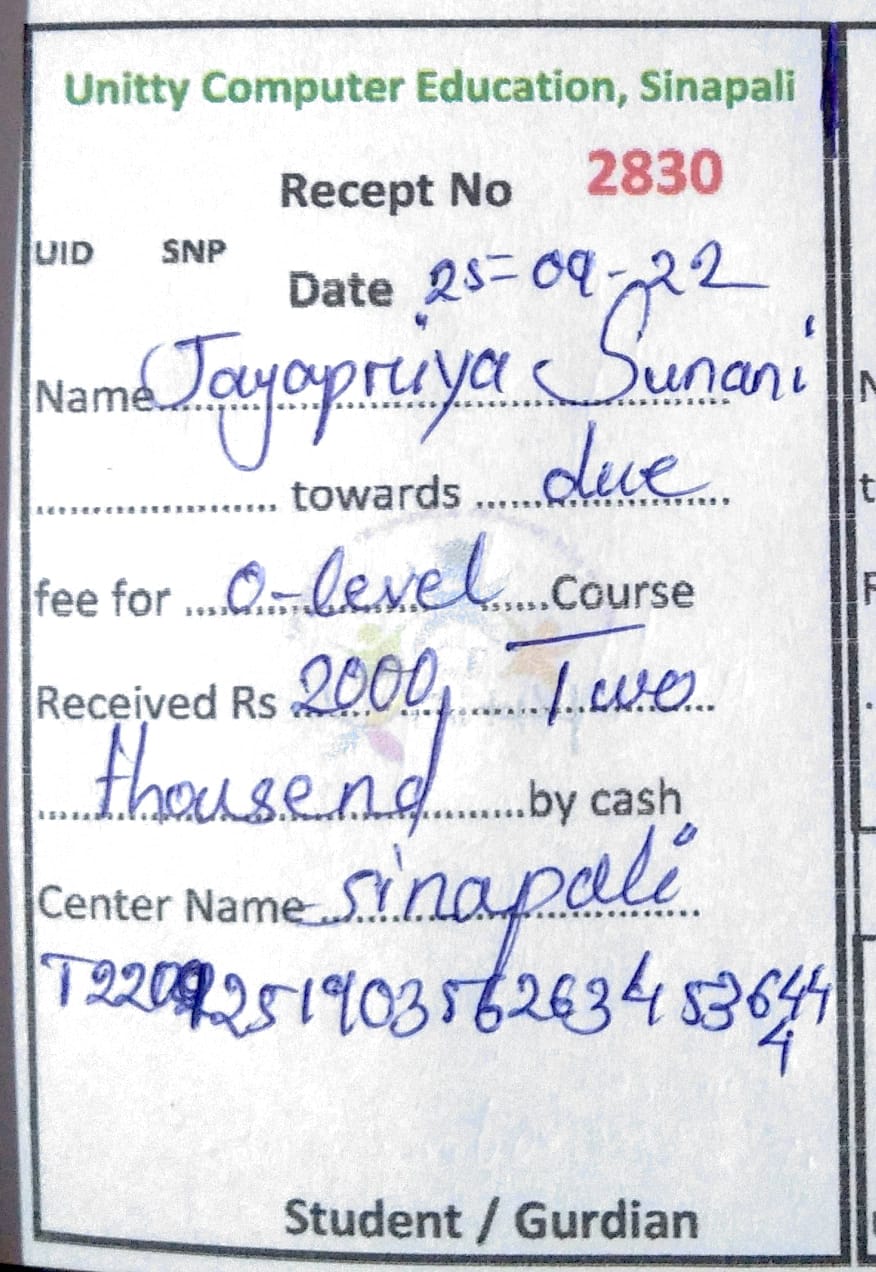 Unitty Computer Education, Sinapali
Recept No 2830
UID SNP
Date 25-09-22
Name Jayapriya Sunani
.................... towards ...... due ......
fee for .... O-level ......Course
Received Rs 2000/ Two
thousend ............by cash
Center Name sinapali
T2209251903562634536444
Student / Gurdian